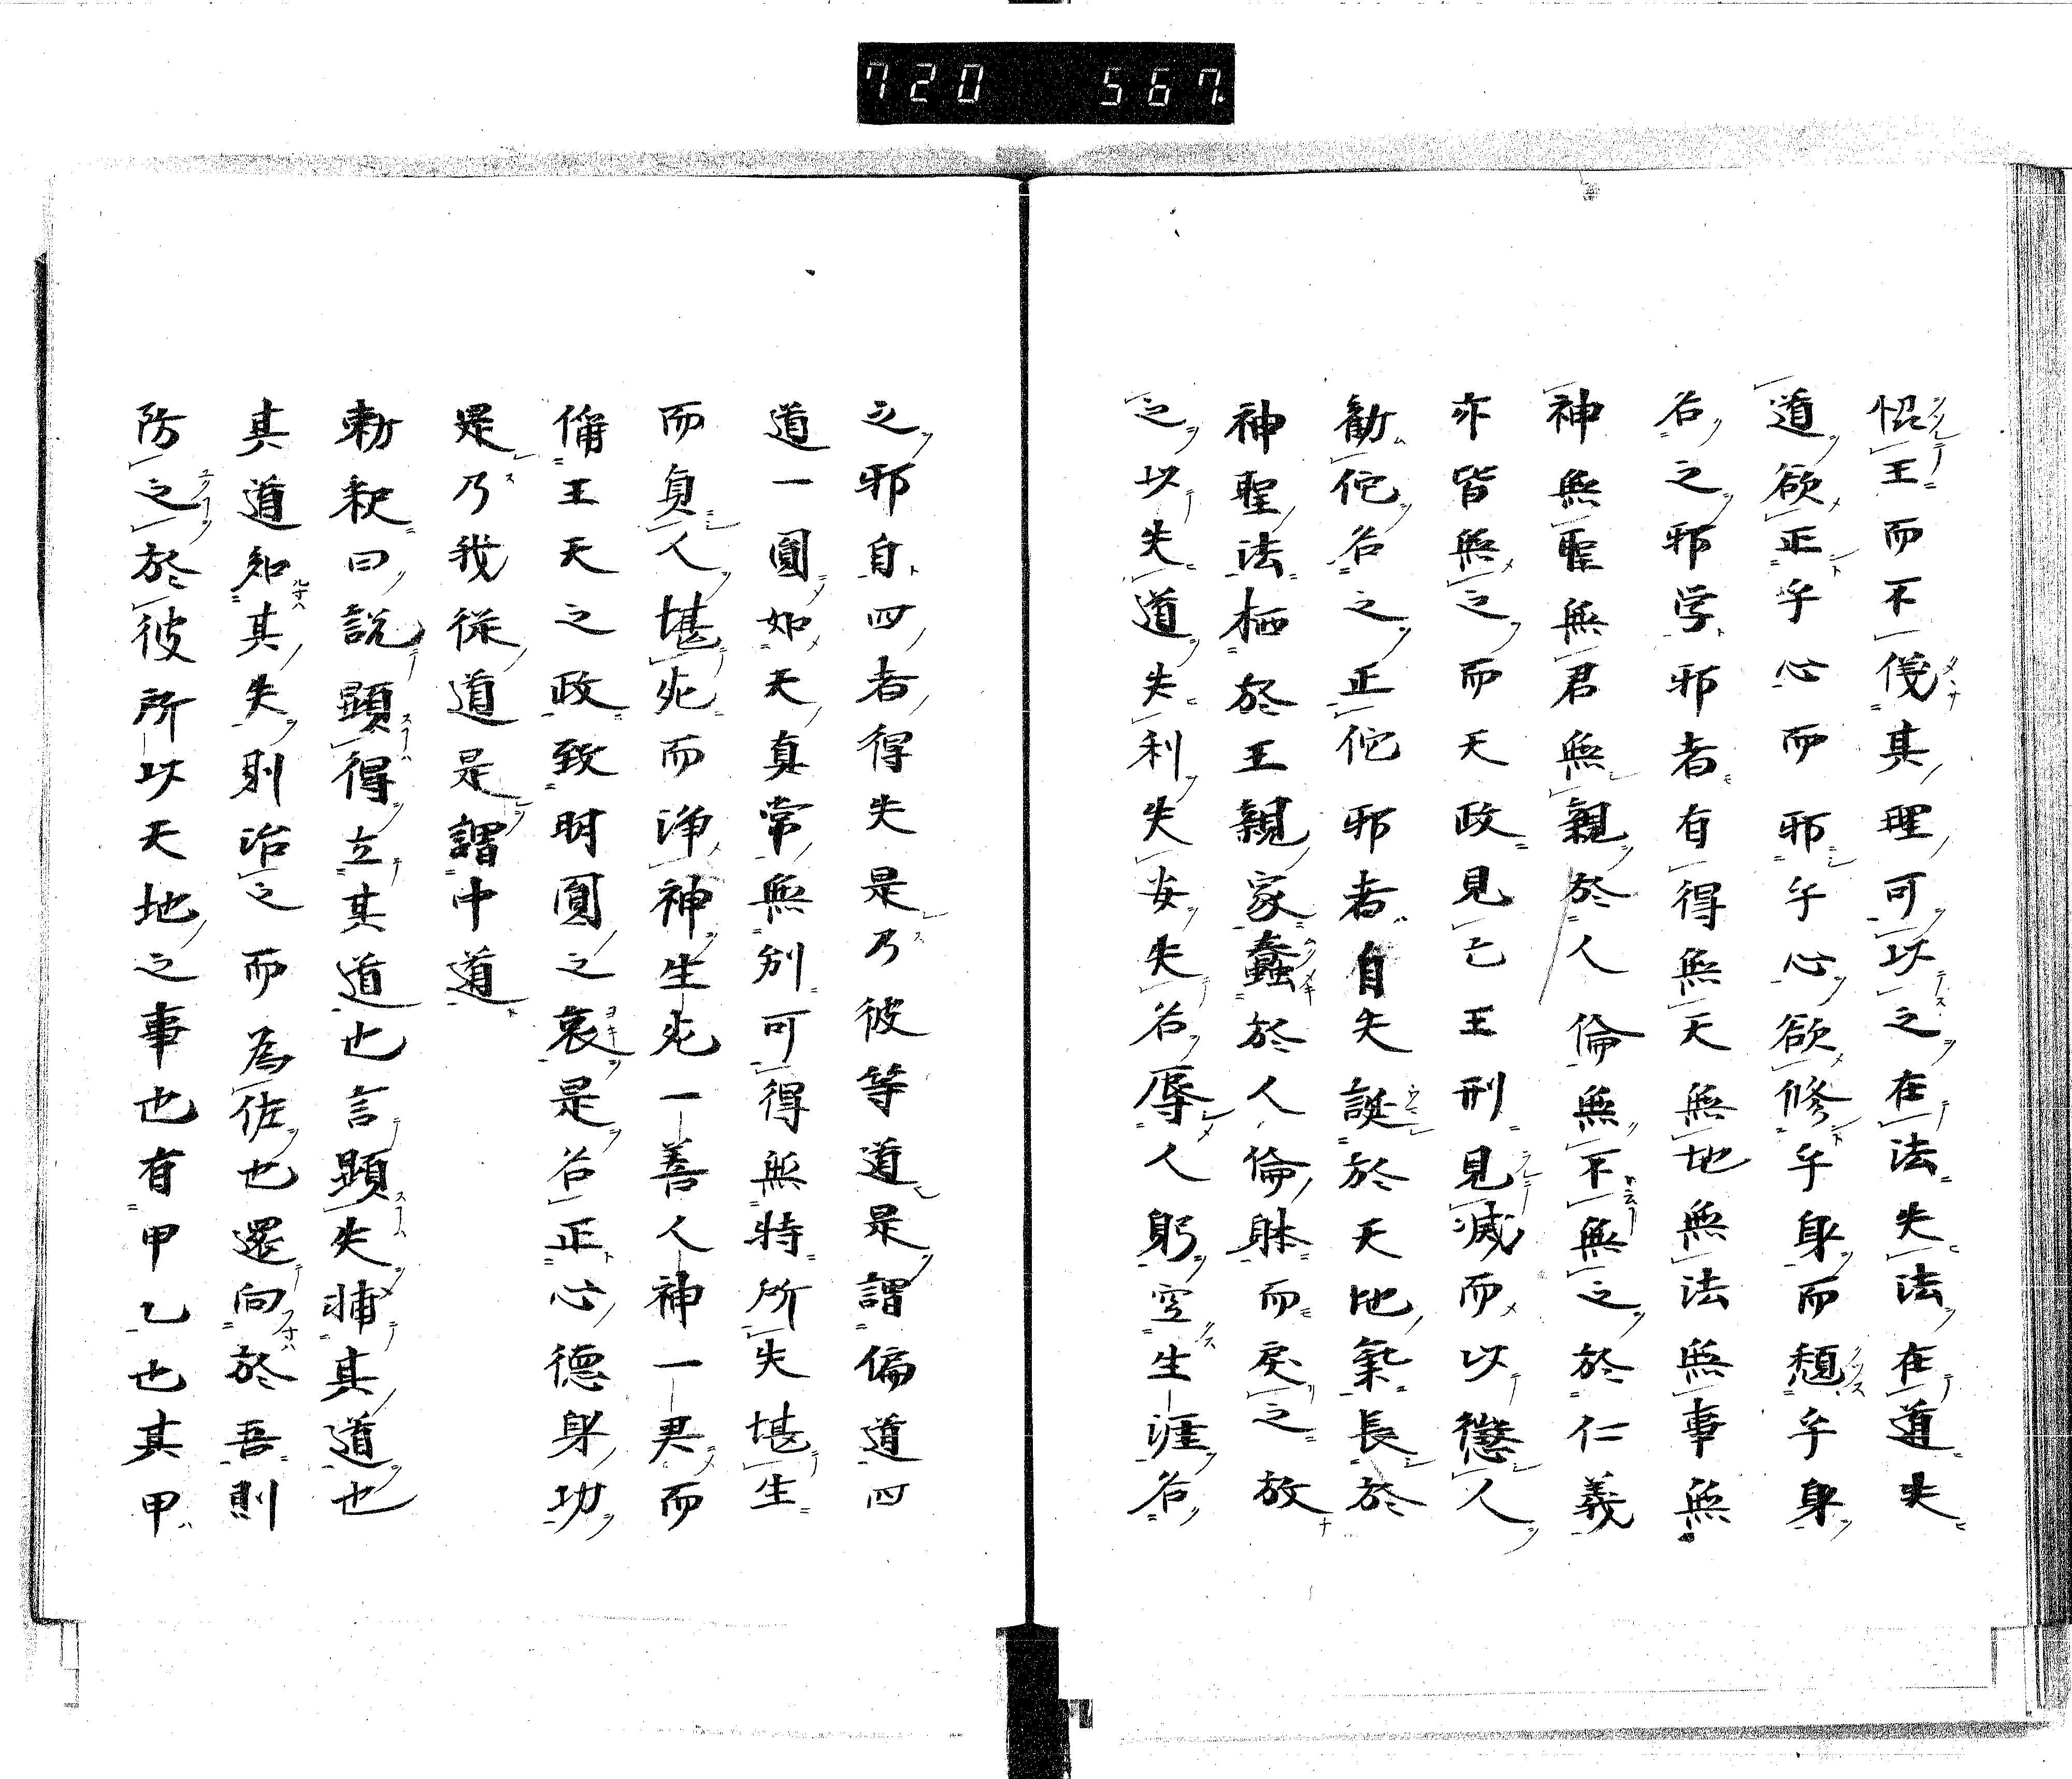 720 567
惃王而不俴其理可以之在法失法在道失
道欲正乎心而邪乎心欲修乎身而頽乎身
谷之邪学邪者有得無天無地無法無事無
神無聖無君無親於人倫無不無之於仁義
亦皆無之而天政見亡王刑見滅而以懲人
勧佗谷之正佗邪者自失誕於天地氣長於
神聖法栖於王親家蠢於人倫躰而戻之故
之以失道失利失女失谷辱人躬空生涯谷
之邪自四者得失是乃彼等道是謂偏道四
道一圓如天真常無別可得無特所失堪生
而負人堪死而浄神生死一善人神一君而
備王天之政致時圓之衷是谷正心德身功
是乃我従道是謂中道
勅釈曰説顕得立其道也言顕失補其道也
其道知其失則治之而為佐也還向於吾則
防之於彼所以天地之事也有甲乙也其甲